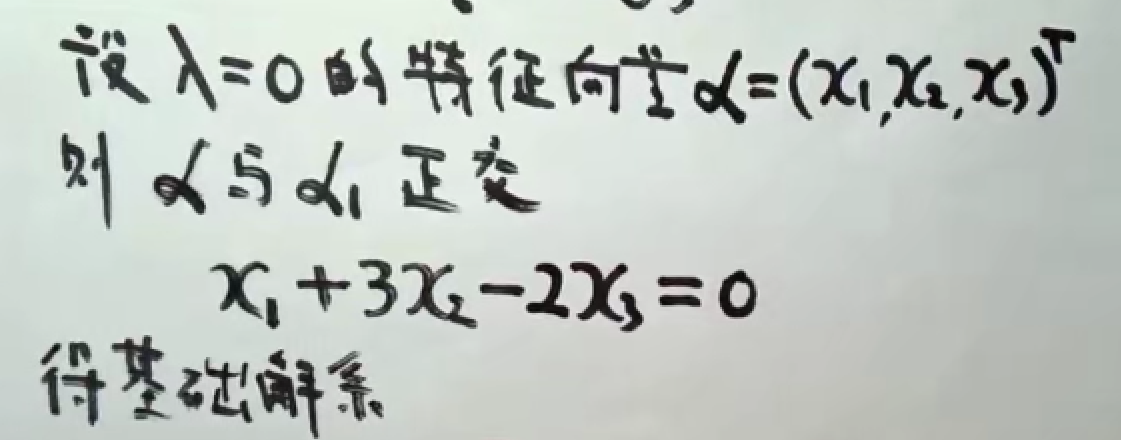 设 λ=0 的特征向量 α=(x₁,x₂,x₃)ᵀ
则 α与α₁ 正交
x₁+3x₂-2x₃=0
得基础解系